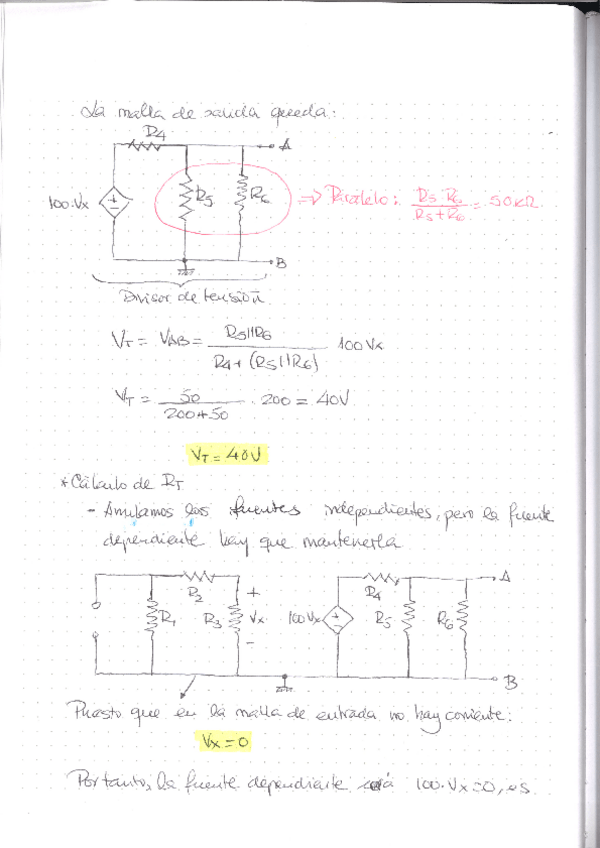 La malla de salida queda:
R4
A
100·Vx
+
-
R5
R6
=> Paralelo: R5·R6 / R5+R6 = 50KΩ
B
Divisor de tensión
VT = VAB = R5||R6 / R4+(R5||R6) 100Vx
VT = 50 / 200+50 · 200 = 40V
VT = 40V
* Cálculo de RT
- Anulamos las fuentes independientes, pero la fuente
dependiente hay que mantenerla
R2
R1
R3
+
Vx
-
100Vx
+
-
R4
R5
R6
A
B
Puesto que en la malla de entrada no hay corriente:
Vx=0
Por tanto, la fuente dependiente será 100·Vx=0, es